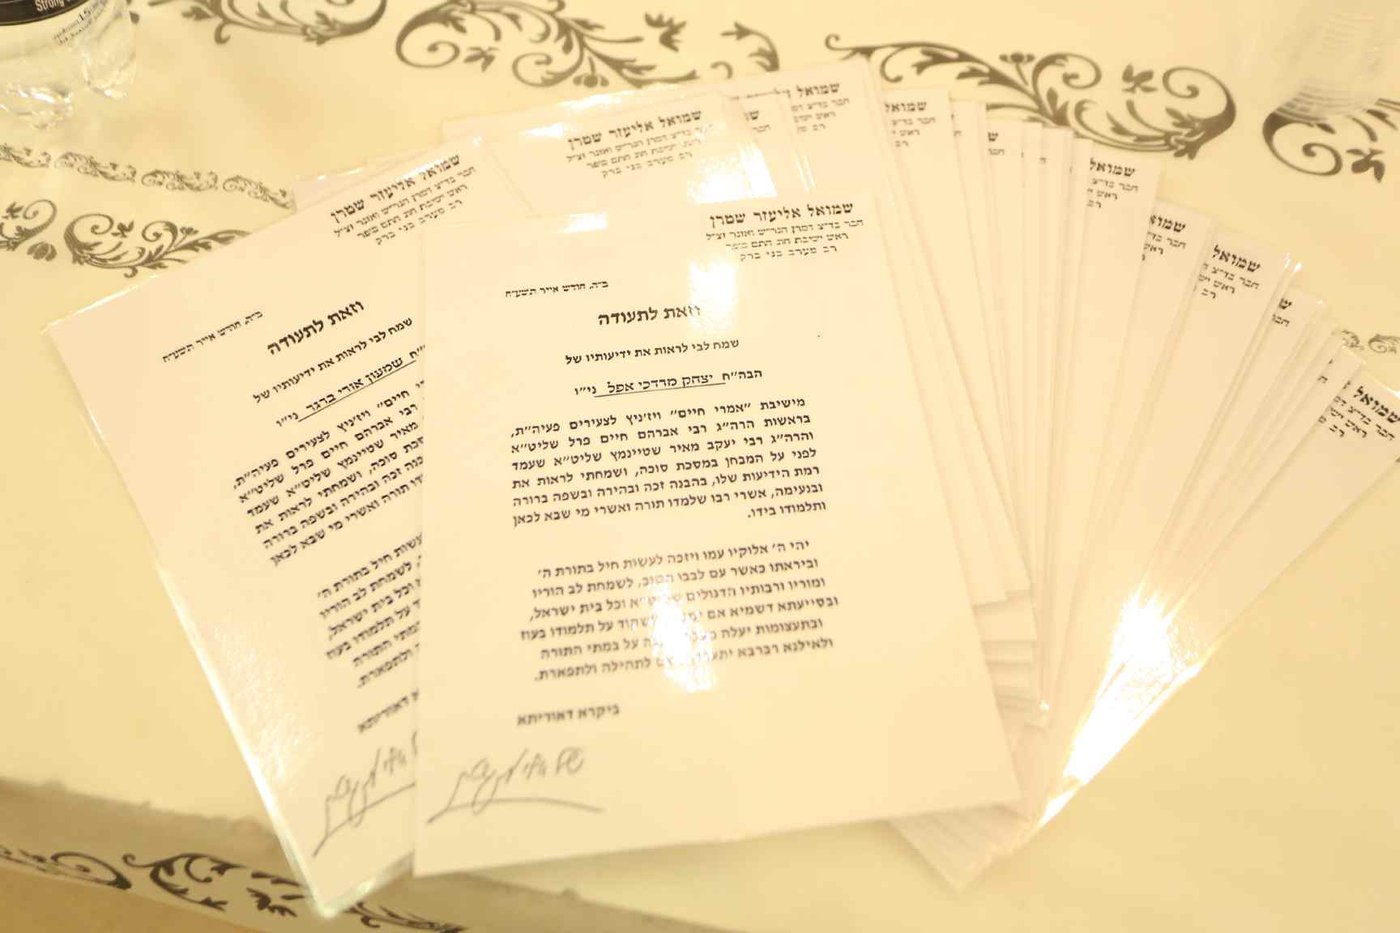 Strong
שמואל אליעזר שטרן
חבר בד״צ דמרן הגר״ש ואזנר זצ״ל
ראש ישיבת חוג חתם סופר
רב מערב בני ברק
ב״ה, חודש אייר תשע״ח
וזאת לתעודה
שמח לבי לראות את ידיעותיו של
הבה״ח יצחק מרדכי אפל ני״ו
מישיבת ״אמרי חיים״ ויז׳ניץ לצעירים פעיה״ת,
בראשות הרה״ג רבי אברהם חיים פרל שליט״א
והרה״ג רבי יעקב מאיר שטיינמץ שליט״א שעמד
לפני על המבחן במסכת סוכה, ושמחתי לראות את
רמת הידיעות שלו, בהבנה זכה ובהירה ובשפה ברורה
ובנעימה, אשרי רבו שלמדו תורה ואשרי מי שבא לכאן
ותלמודו בידו.
יהי ה׳ אלוקיו עמו ויזכה לעשות חיל בתורת ה׳
וביראתו כאשר עם לבבו הטוב, לשמחת לב הוריו
ומוריו ורבותיו הדגולים שליט״א וכל בית ישראל,
ובסייעתא דשמיא אם על תלמודו בעוז
ובתעצומות יעלה על במתי התורה
ולאילנא רברבא לתהילה ולתפארת.
ביקרא דאורייתא
שמואל אליעזר שטרן
חבר בד״צ דמרן הגר״ש ואזנר זצ״ל
ראש ישיבת חוג חתם סופר
רב מערב בני ברק
ב״ה, חודש אייר תשע״ח
וזאת לתעודה
שמח לבי לראות את ידיעותיו של
שמעון אורי ברגר ני״ו
חיים״ ויז׳ניץ לצעירים פעיה״ת,
רבי אברהם חיים פרל שליט״א
מאיר שטיינמץ שליט״א שעמד
סוכה, ושמחתי לראות את
זכה ובהירה ובשפה ברורה
תורה ואשרי מי שבא לכאן
לעשות חיל בתורת ה׳
לשמחת לב הוריו
וכל בית ישראל,
על תלמודו בעוז
במתי התורה
ולתפארת.
דאורייתא
שמואל אליעזר שטרן
רב מערב בני ברק
שמואל אליעזר שטרן
שמואל
שמואל
שמואל
חבר בד״צ
שמואל
חבר בד״צ
שמואל